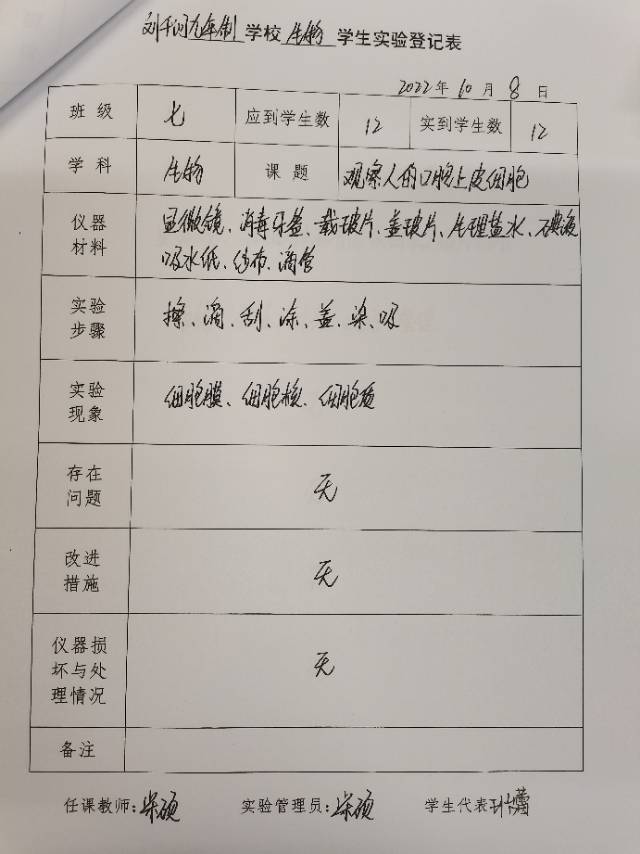 刘千门九年制学校 生物 学生实验登记表
2022年10月8日
班级 七 应到学生数 12 实到学生数 12
学科 生物 课题 观察人的口腔上皮细胞
仪器材料 显微镜、消毒牙签、载玻片、盖玻片、生理盐水、碘液
吸水纸、纱布、滴管
实验步骤 擦、滴、刮、涂、盖、染、吸
实验现象 细胞膜、细胞核、细胞质
存在问题 无
改进措施 无
仪器损坏与处理情况 无
备注
任课教师: 实验管理员: 学生代表: